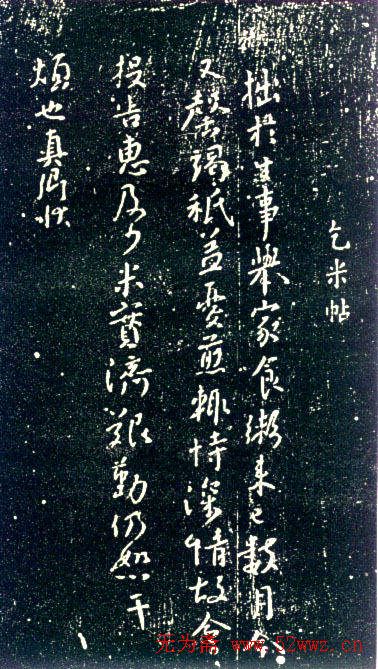 乞米帖
拙於生事舉家食粥來已數月今
又罄竭祗益憂煎輒恃深情故令
投告惠及少米實濟艱勤仍恕干
煩也真卿狀
无为斋 www.52wwz.cn